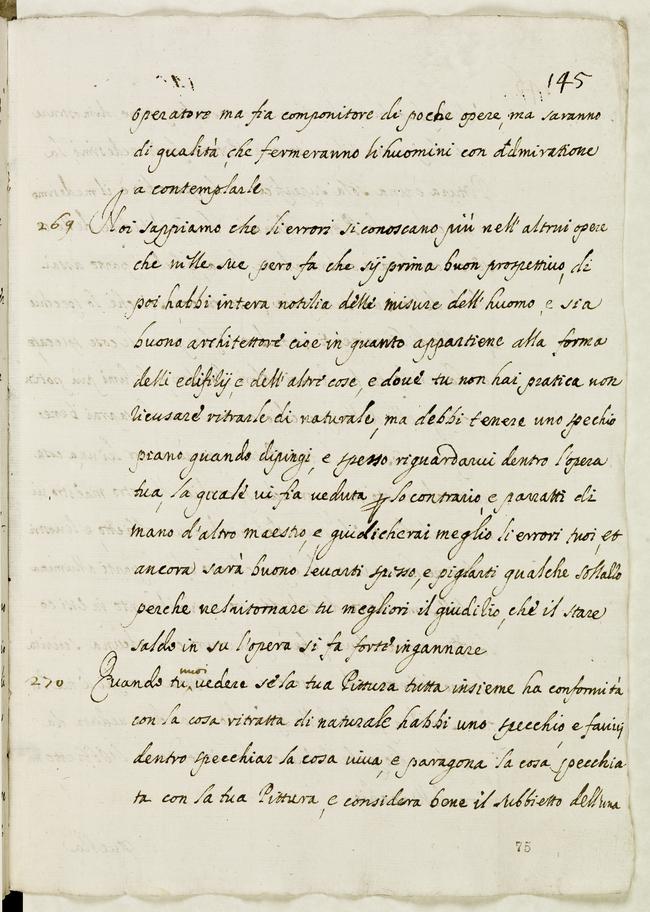 145
operatore ma fia componitore di poche opere, ma saranno
di qualità che fermeranno li huomini con admiratione
a contemplarle
269 Noi sappiamo che li errori si conoscano più nell' altrui opere
che nelle sue pero fa che sij prima buon prospettivo, di
poi habbi intera notitia delle misure dell' huomo, e sia
buono architettore cioe in quanto appartiene alla forma
delli edifitij, e dell' altre cose, e dove tu non hai pratica non
ricusare ritrarle di naturale, ma debbi tenere uno spechio
piano quando dipingi, e spesso riguardarvi dentro l'opera
tua, la quale vi fia veduta p lo contrario, e parratti di
mano d'altro maestro, e giudicherai meglio li errori tuoi, et
ancora sarà buono levarti spesso, e pigliarti qualche sollazzo
perche nel ritornare tu megliori il giuditio, che il stare
saldo in su l'opera si fa forte ingannare
270 Quando tu vuoi vedere se la tua Pittura tutta insieme ha conformità
con la cosa ritratta di naturale habbi uno specchio, e favvij
dentro specchiar la cosa viva, e paragona la cosa specchia
ta con la tua Pittura, e considera bene il subbietto dell'una
75